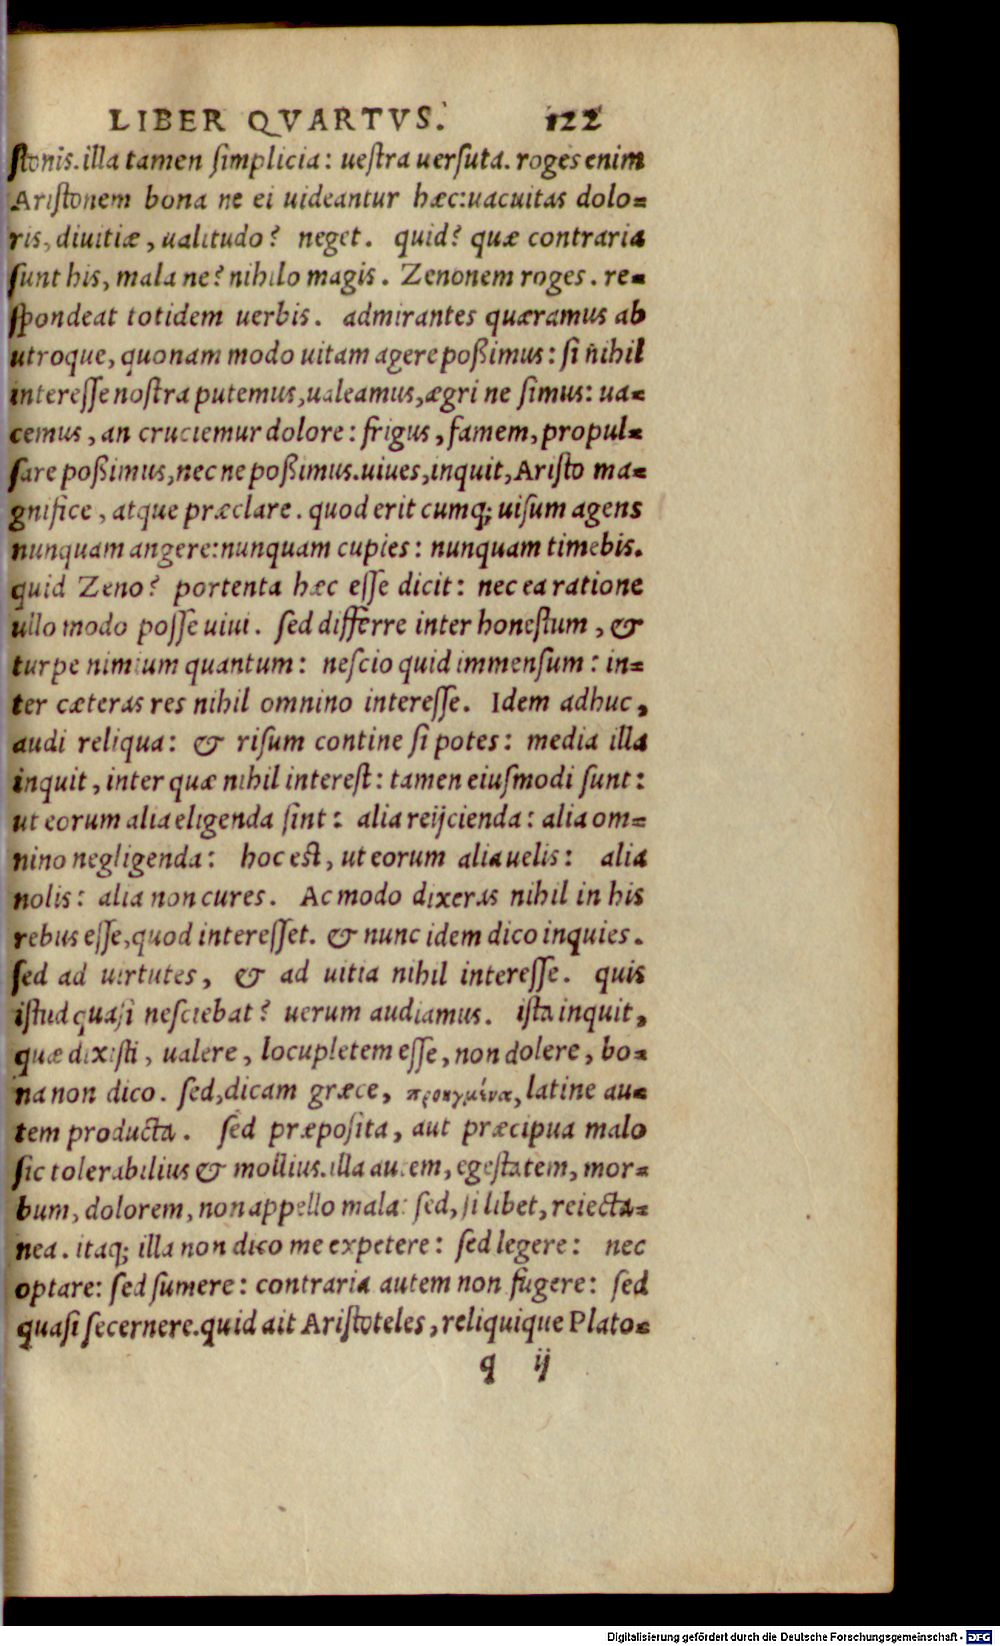 LIBER QVARTVS. 122
ſtonis. illa tamen ſimplicia: ueſtra uerſuta. roges enim
Ariſtonem bona ne ei uideantur hæc: uacuitas dolo=
ris, diuitiæ, ualitudo? neget. quid? quæ contraria
ſunt his, mala ne? nihilo magis. Zenonem roges. re=
ſpondeat totidem uerbis. admirantes quæramus ab
utroque, quonam modo uitam agere poßimus: ſi nihil
intereſſe noſtra putemus, ualeamus, ægri ne ſimus: ua=
cemus, an cruciemur dolore: frigus, famem, propul=
ſare poßimus, nec ne poßimus. uiues, inquit, Ariſto ma=
gnifice, atque præclare. quod erit cumq; uiſum agens
nunquam angere: nunquam cupies: nunquam timebis.
quid Zeno? portenta hæc eſſe dicit: nec ea ratione
ullo modo poſſe uiui. ſed differre inter honeſtum, &
turpe nimium quantum: neſcio quid immenſum: in=
ter cæteras res nihil omnino intereſſe. Idem adhuc,
audi reliqua: & riſum contine ſi potes: media illa
inquit, inter quæ nihil intereſt: tamen eiuſmodi ſunt:
ut eorum alia eligenda ſint: alia reijcienda: alia om=
nino negligenda: hoc eſt, ut eorum alia uelis: alia
nolis: alia non cures. Ac modo dixeras nihil in his
rebus eſſe, quod intereſſet. & nunc idem dico inquies.
ſed ad uirtutes, & ad uitia nihil intereſſe. quis
iſtud quaſi neſciebat? uerum audiamus. iſta inquit,
quæ dixiſti, ualere, locupletem eſſe, non dolere, bo=
na non dico. ſed, dicam græce, προηγμένα, latine au=
tem producta. ſed præpoſita, aut præcipua malo
ſic tolerabilius & mollius. illa autem, egeſtatem, mor=
bum, dolorem, non appello mala: ſed, ſi libet, reiecta=
nea. itaq; illa non dico me expetere: ſed legere: nec
optare: ſed ſumere: contraria autem non fugere: ſed
quaſi ſecernere. quid ait Ariſtoteles, reliquique Plato=
q ij
Digitalisierung gefördert durch die Deutsche Forschungsgemeinschaft - DFG